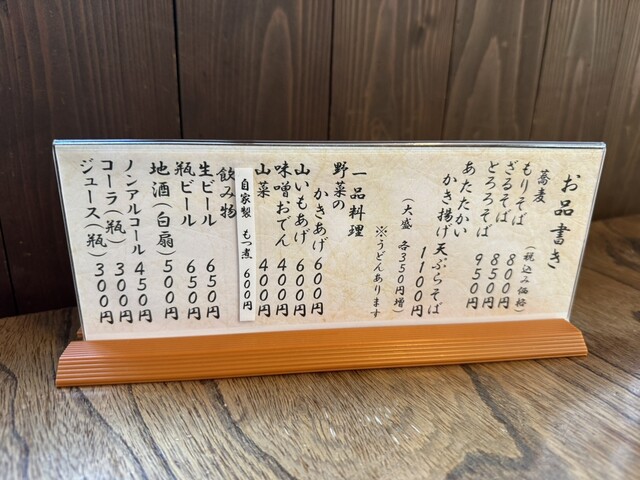 お品書き
(税込み価格)
蕎麦
もりそば 800円
ざるそば 850円
とろろそば 950円
あたたかい
かき揚げ天ぷらそば
1100円
(大盛 各350円増)
※うどんあります
一品料理
野菜の
かきあげ 600円
山いもあげ 600円
味噌おでん 400円
山菜 400円
自家製 もつ煮 600円
飲み物
生ビール 650円
瓶ビール 650円
地酒(白扇) 500円
ノンアルコール 450円
コーラ(瓶) 300円
ジュース(瓶) 300円